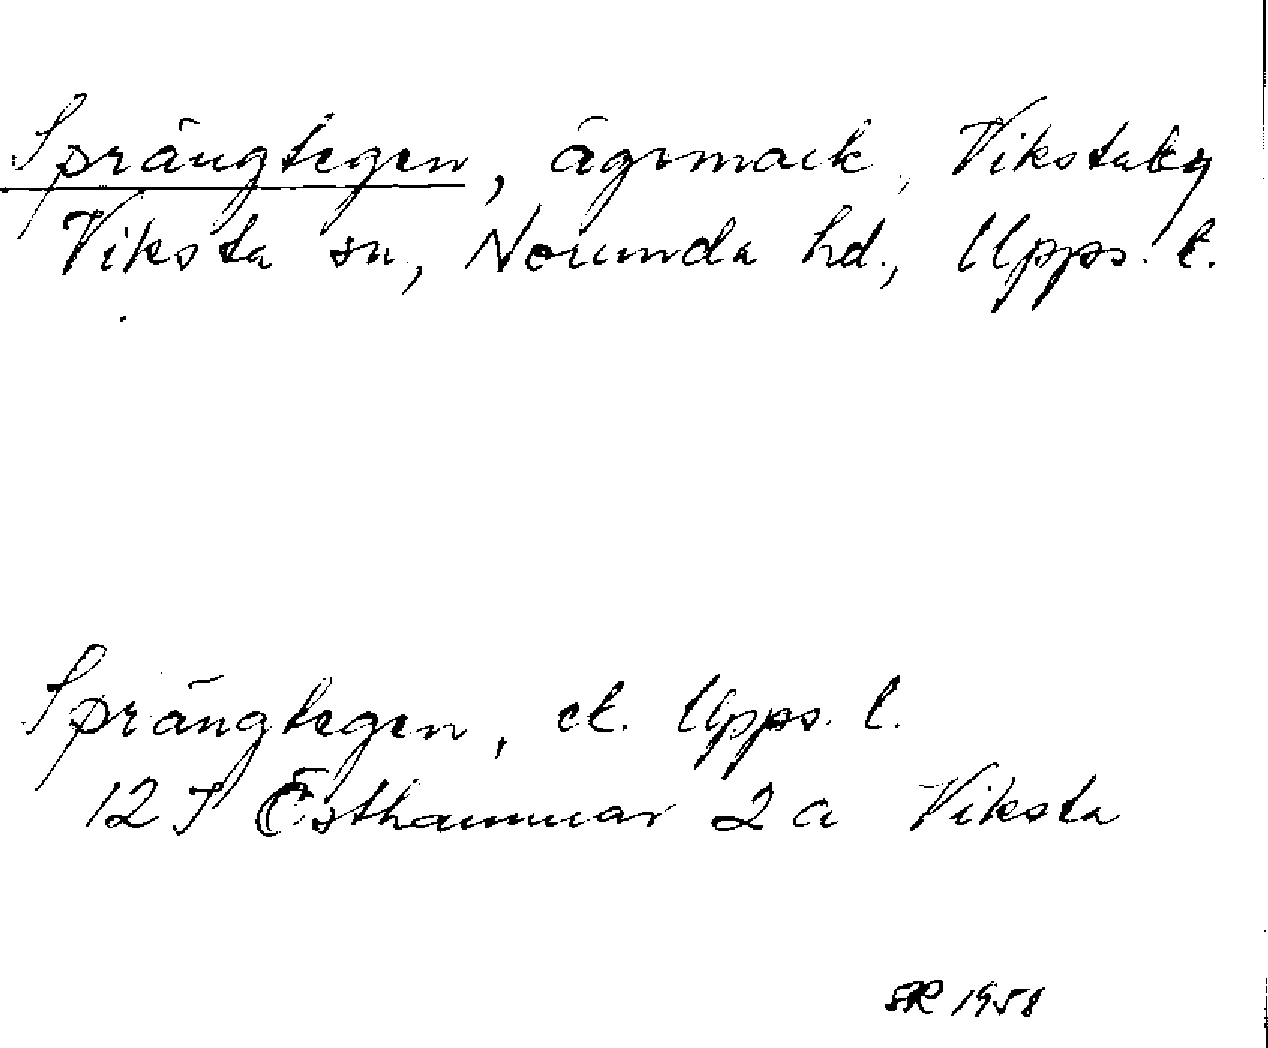 Sprängtegen, ägomark, Vikstaby
Viksta sn, Norunda hd., Upps. l.
Sprängtegen, ek. Upps. l.
12 I Östhammar 2 a Viksta
1958